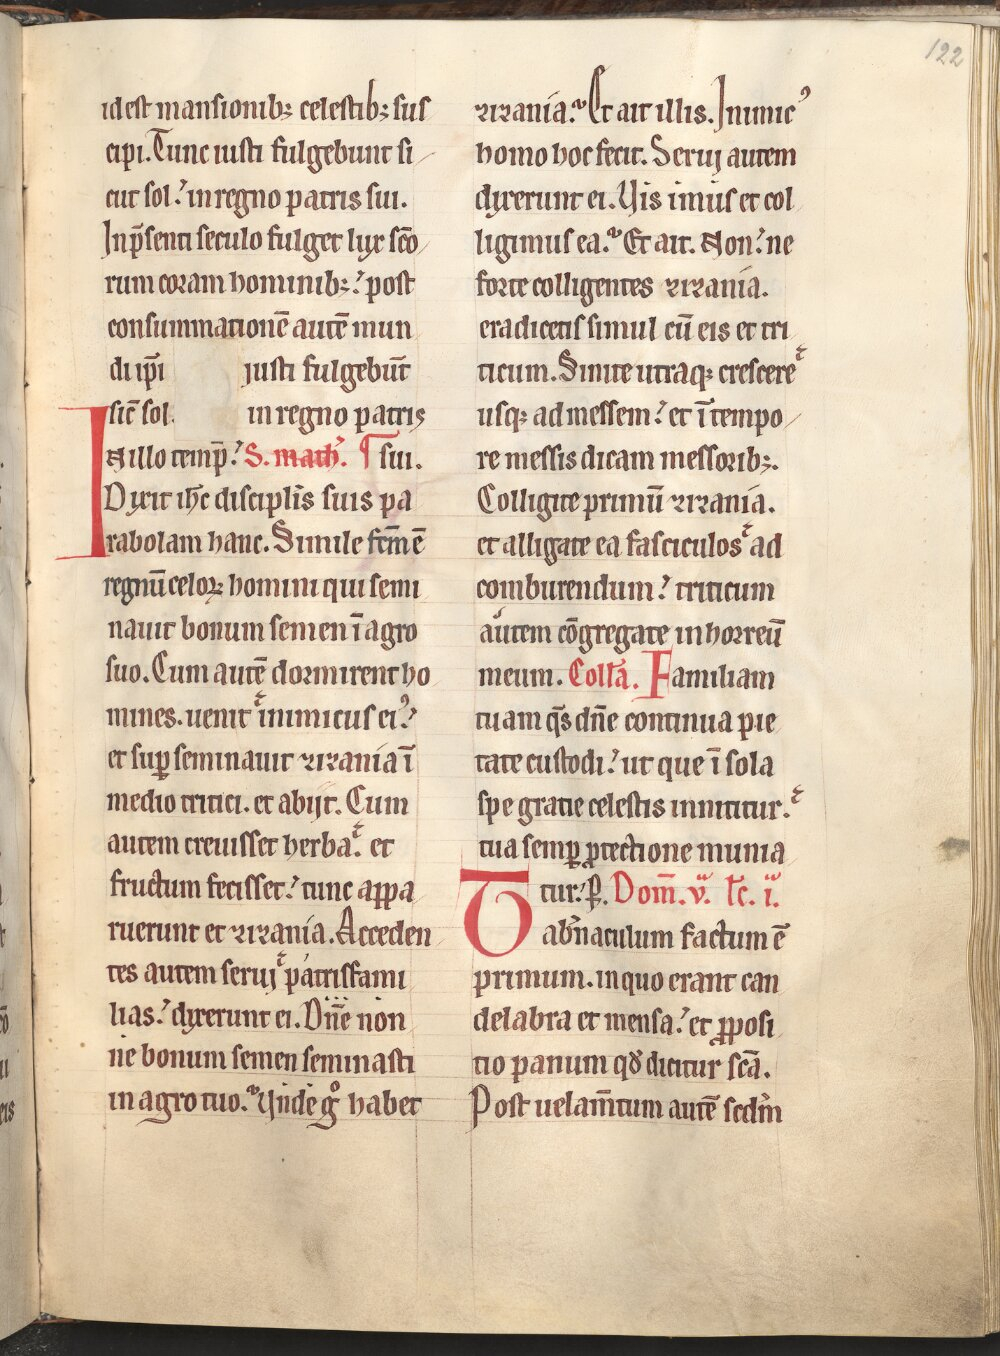 122
idest mansionibꝫ celestibꝫ sus
cipi. Tunc iusti fulgebunt si
cut sol. in regno patris sui.
In p̄senti seculo fulget lux sc̄o
rum coram hominibꝫ. post
consummationē autē mun
di ip̄i iusti fulgebūt
sic̄ sol. in regno patris
IN illo temp̄. S. math. ¶ sui.
Dixit ih̄c discipl̄is suis pa
rabolam hanc. Simile fc̄m ē
regnū celoꝝ homini qui semi
nauit bonum semen ī agro
suo. Cum autē dormirent ho
mines. uenit inimicus eiꝰ.
et suꝑ seminauit zizania ī
medio tritici. et abijt. Cum
autem creuisset herba. et
fructum fecisset. tunc appa
ruerunt et zizania. Acceden
tes autem seruij patrisfami
lias. dixerunt ei. Dn̄e non
ne bonum semen seminasti
in agro tuo. Vnde gͦ habet
zizania. Et ait illis. Inimicꝰ
homo hoc fecit. Seruij autem
dixerunt ei. Vis imus et col
ligimus ea. Et ait. Non. ne
forte colligentes zizania.
eradicetis simul cū eis et tri
ticum. Sinite utraqꝫ crescere
usqꝫ ad messem. et ī tempo
re messis dicam messoribꝫ.
Colligite primū zizania.
et alligate ea fasciculos ad
comburendum. triticum
autem cōgregate in horreū
meum. Coll̄a. Familiam
tuam q̄s dn̄e continua pie
tate custodi. ut que ī sola
spe gratie celestis innititur.
tua semꝑ ꝓtectione munia
tur. P. Dom̄. v. lc̄. i.
Tab̄naculum factum ē
primum. in quo erant can
delabra et mensa. et ꝓposi
tio panum qđ dicitur sc̄a.
Post uelam̄tum autē scdm̄